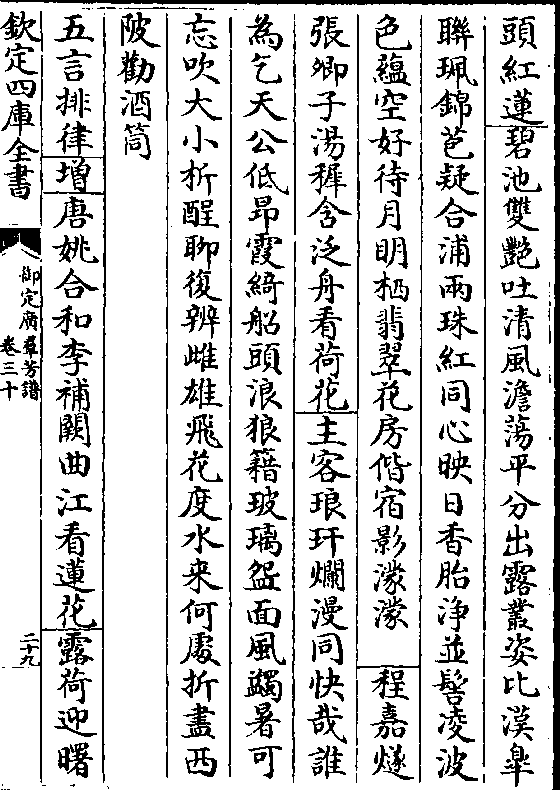 頭紅蓮碧池雙艷吐清風澹蕩平分出露叢姿比漢皐
聯珮錦苞疑合浦兩珠紅同心映日香胎浄並髻凌波
色蘊空好待月明栖翡翠花房偕宿影濛濛　程嘉燧
張卿子湯穉含泛舟看荷花主客琅玕爛漫同快哉誰
為乞天公低昻霞綺船頭浪狼藉玻璃盌面風蠲暑可
忘吹大小析酲聊復辨雌雄飛花度水来何處折盡西
陂勸酒筒
五言排律增唐姚合和李補闕曲江看蓮花露荷迎曙
欽定四庫全書
御定廣羣芳譜
卷三十
二十九